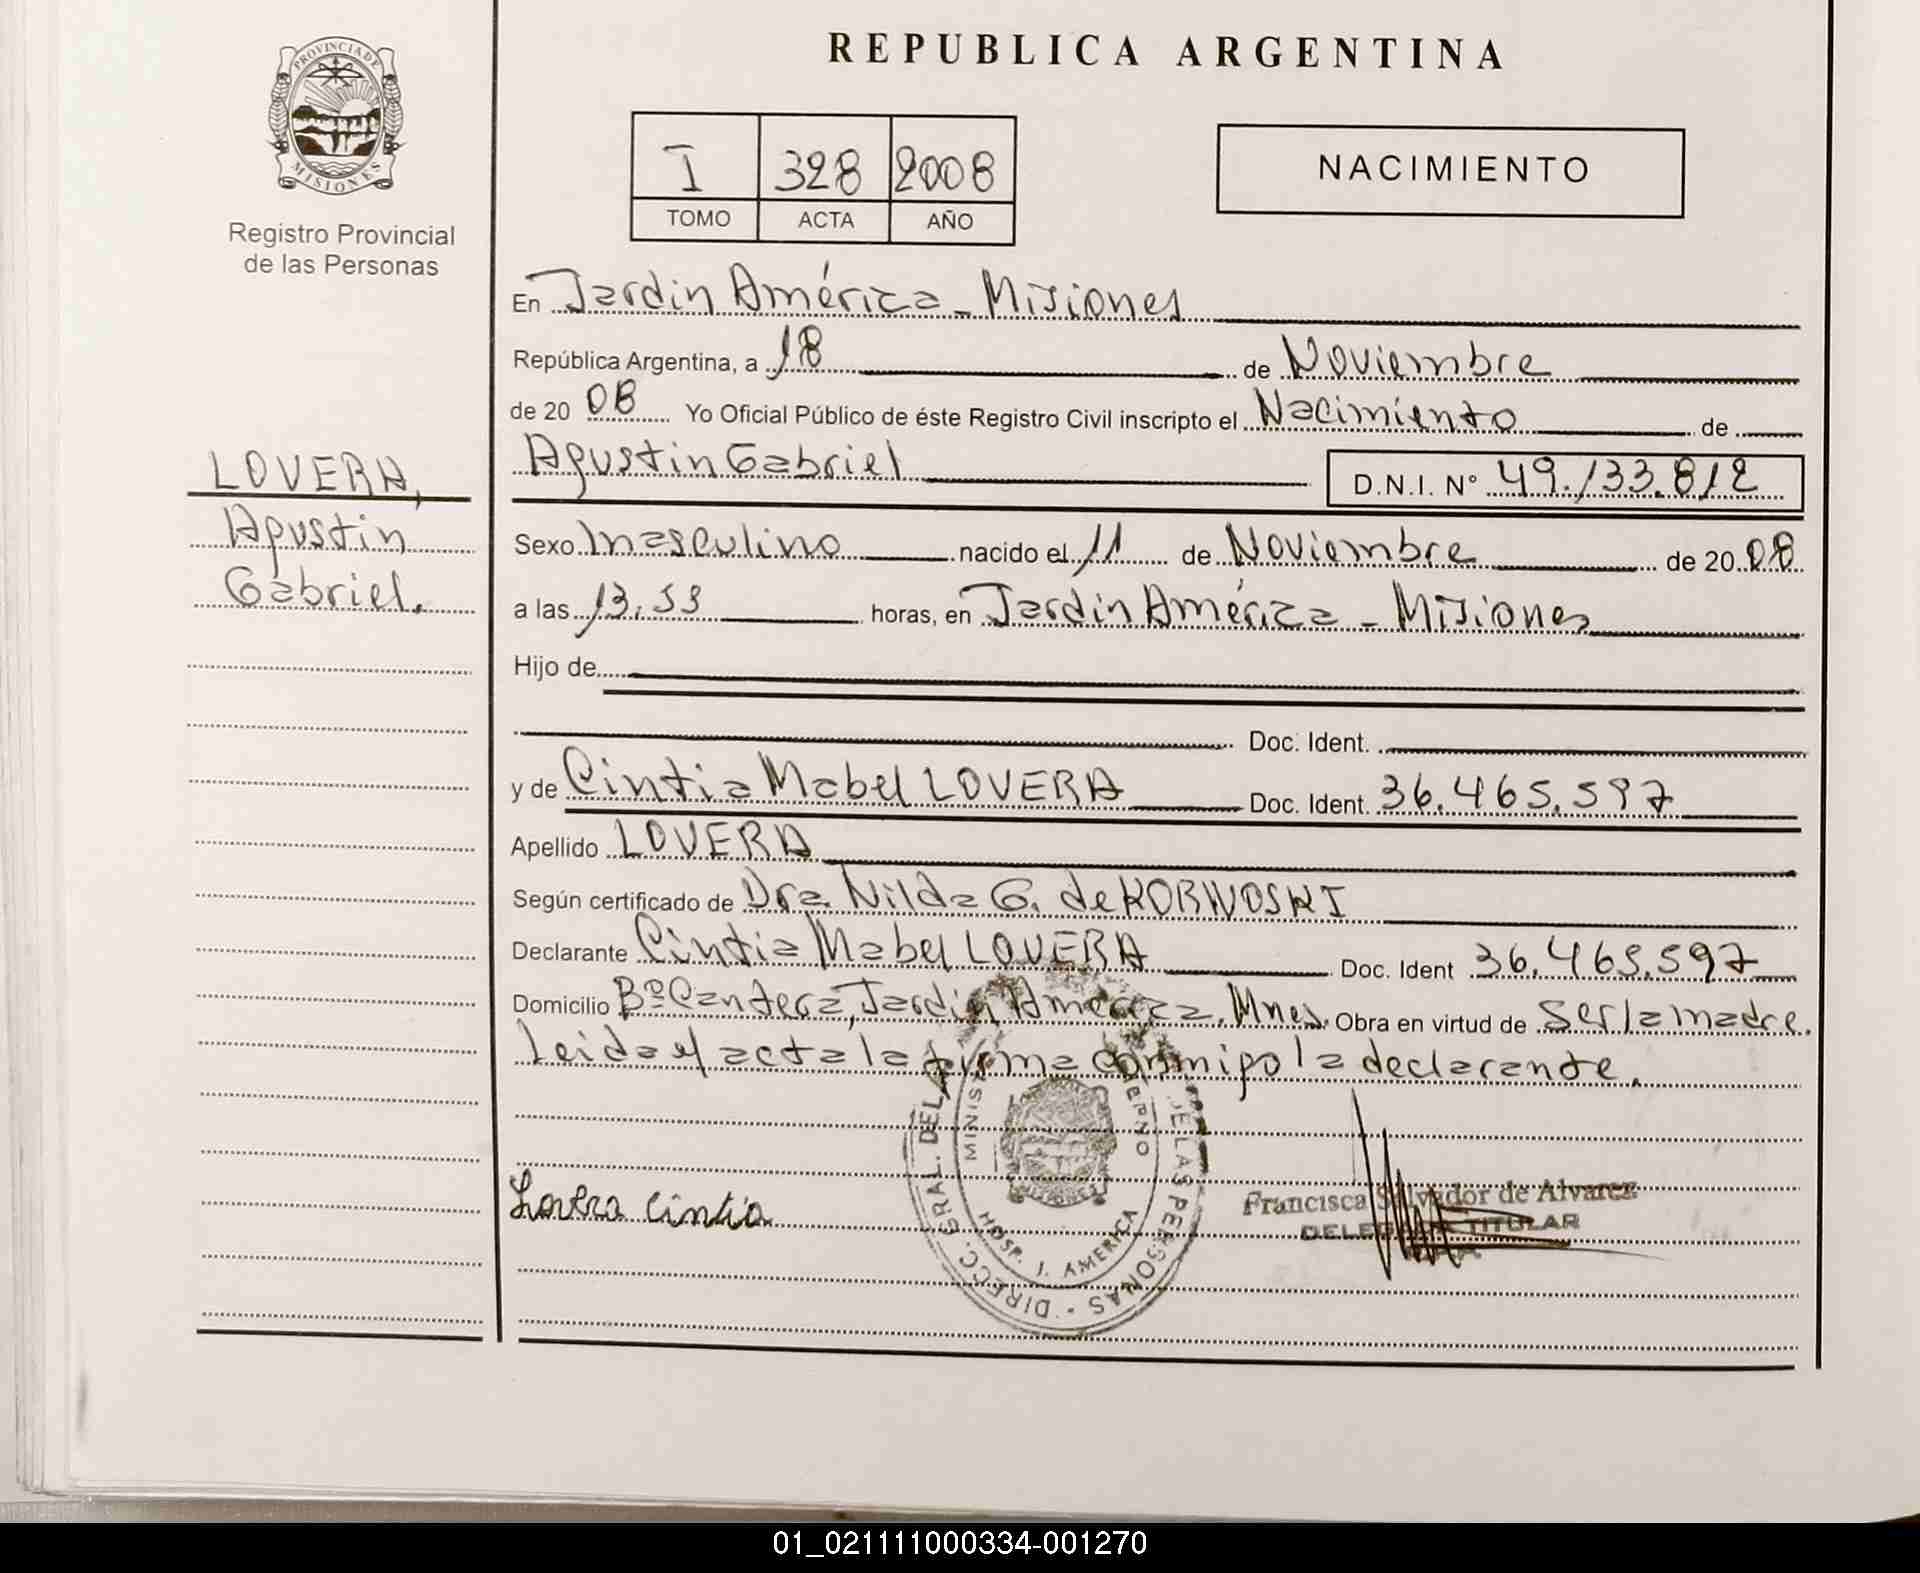 REPUBLICA ARGENTINA
PROVINCIA DE
MISIONES
Registro Provincial
de las Personas
I 328 2008
TOMO ACTA AÑO
NACIMIENTO
LOVERA,
Agustin
Gabriel.
En Jardin América - Misiones
República Argentina, a 18 de Noviembre
de 20 08 Yo Oficial Público de éste Registro Civil inscripto el Nacimiento de
Agustin Gabriel D.N.I. N° 49.133.812
Sexo masculino nacido el 11 de Noviembre de 20 08
a las 13,53 horas, en Jardin América - Misiones
Hijo de
Doc. Ident.
y de Cintia Mabel LOVERA Doc. Ident. 36.465.597
Apellido LOVERA
Según certificado de Dra. Nilda G. de KORNOSKI
Declarante Cintia Mabel LOVERA Doc. Ident 36.465.597
Domicilio Bº Cantera, Jardin América, Mnes. Obra en virtud de ser la madre.
Leida el acta la firma conmigo la declarante.
Lovera Cintia
DIRECC. GRAL. DEL DE LAS PERSONAS
HOSP. J. AMERICA
Francisca Salvador de Alvarez
DELEGADA TITULAR
01_021111000334-001270